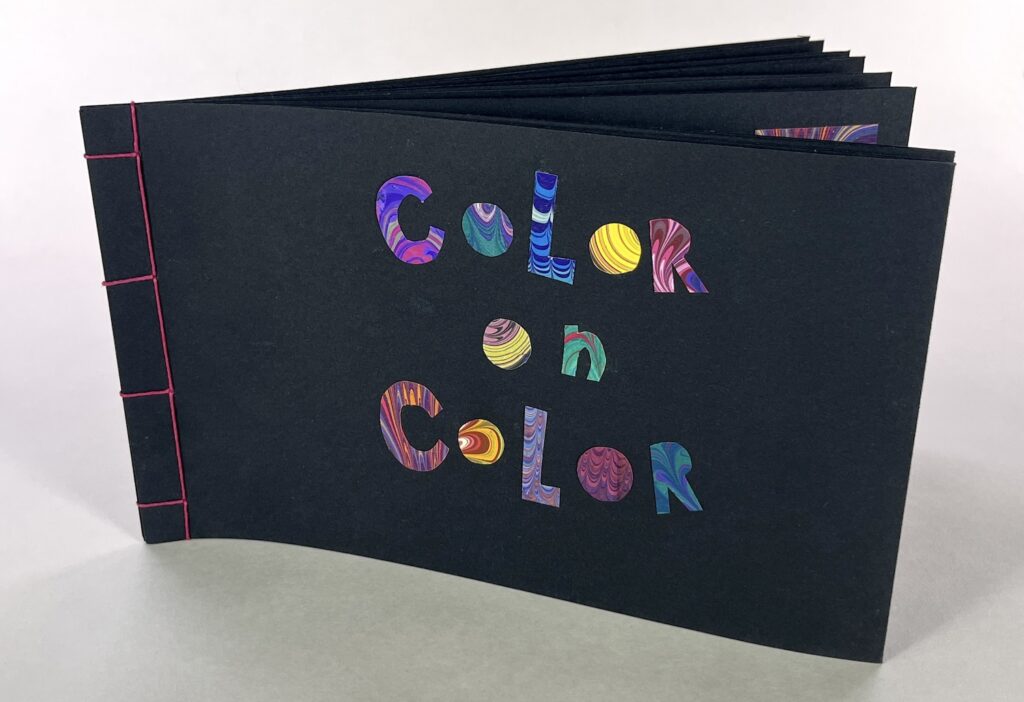 CoLoR
on
CoLoR